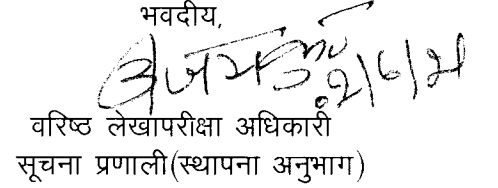 भवदीय,
वरिष्ठ लेखापरीक्षा अधिकारी
सूचना प्रणाली(स्थापना अनुभाग)